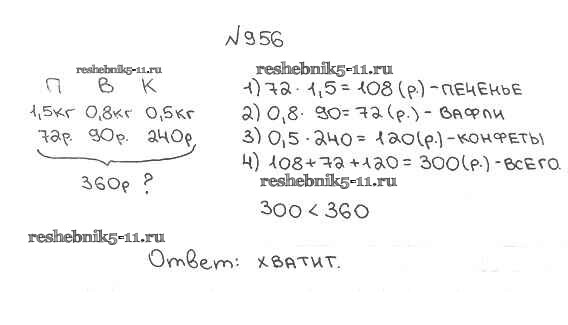 №956
reshebnik5-11.ru
П В К
1,5кг 0,8кг 0,5кг
72р. 90р. 240р.
360р ?
reshebnik5-11.ru
1) 72 · 1,5 = 108 (р.) - ПЕЧЕНЬЕ
2) 0,8 · 90 = 72 (р.) - ВАФЛИ
3) 0,5 · 240 = 120 (р.) - КОНФЕТЫ
4) 108 + 72 + 120 = 300 (р.) - ВСЕГО.
reshebnik5-11.ru
300 < 360
reshebnik5-11.ru
Ответ: ХВАТИТ.